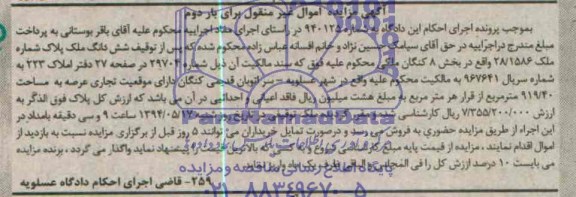 آگهی مزایده اموال غیر منقول برای بار دوم
بموجب پرونده اجرای احکام این دادگاه به شماره ۹۴۰۱۲۵ در راستای اجرای مفاد اجراییه محکوم علیه آقای باقر بوستانی به پرداخت
مبلغ مندرج دراجراییه در حق آقای سیامک حسین نژاد و خانم افسانه عباس زاده محکوم شده که پس از توقیف شش دانگ ملک پلاک شماره
ملک ۲۸/۱۵۸۶ واقع در بخش ۸ کنگان ملکی محکوم علیه فوق که سند مالکیت آن ذیل شماره ۲۹۷۰۴ در صفحه ۲۷ دفتر املاک ۲۲۳ به
شماره سریال ۹۶۷۶۴۱ به مالکیت محکوم علیه واقع در شهر عسلویه اتوبان قدیمی کنگان دارای موقعیت تجاری عرصه به مساحت
۹۱۹/۴۰ مترمربع از قرار هر متر مربع به مبلغ هشت میلیون ریال فاقد اعیانی و احداثی در آن می باشد که ارزش کل پلاک فوق الذکر به
ارزش ۷/۳۵۵/۲۰۰/۰۰۰ ریال کارشناسی ملک توقیفی در تاریخ ۱۳۹۴/۰۵/ ساعت ۹ و سی دقیقه بامداد در
این اجراء از طریق مزایده حضوری به فروش می رسد و درصورت تمایل خریداران می توانند ۵ روز قبل از برگزاری مزایده نسبت به بازدید از
اموال اقدام نمایند . مزایده از قیمت پایه مبلغ کارشناسی شروع و به کسی که بالاترین پیشنهاد نماید واگذار می گردد . برنده مزایده
می بایست ۱۰ درصد ارزش کل را فی المجلس و الباقی ظرف یک ماه واریز نماید
۲۵۹- قاضی اجرای احکام دادگاه عسلویه
پایگاه اطلاع رسانی مناقصه و مزایده
۰۲۱-۸۸۳۴۹۶۷۰-۵